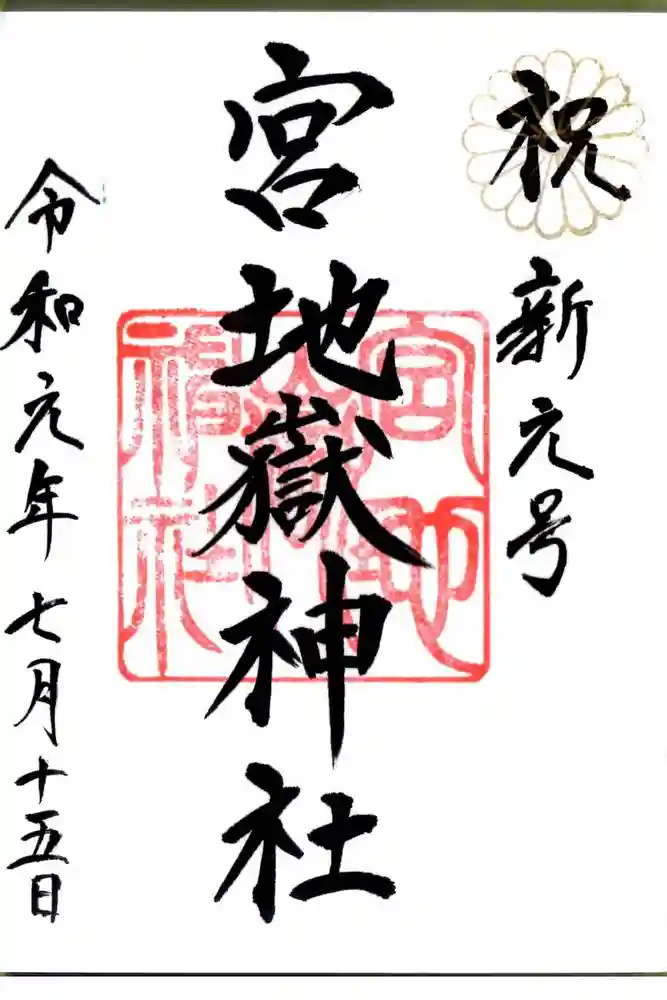 祝
新元号
宮地嶽神社
宮地嶽神社
令和元年七月十五日